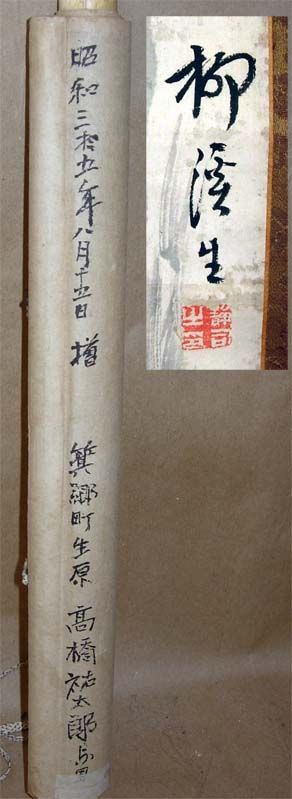 昭和三拾五年八月十五日 増
箕郷町生原 高橋祐太郎
柳渓生